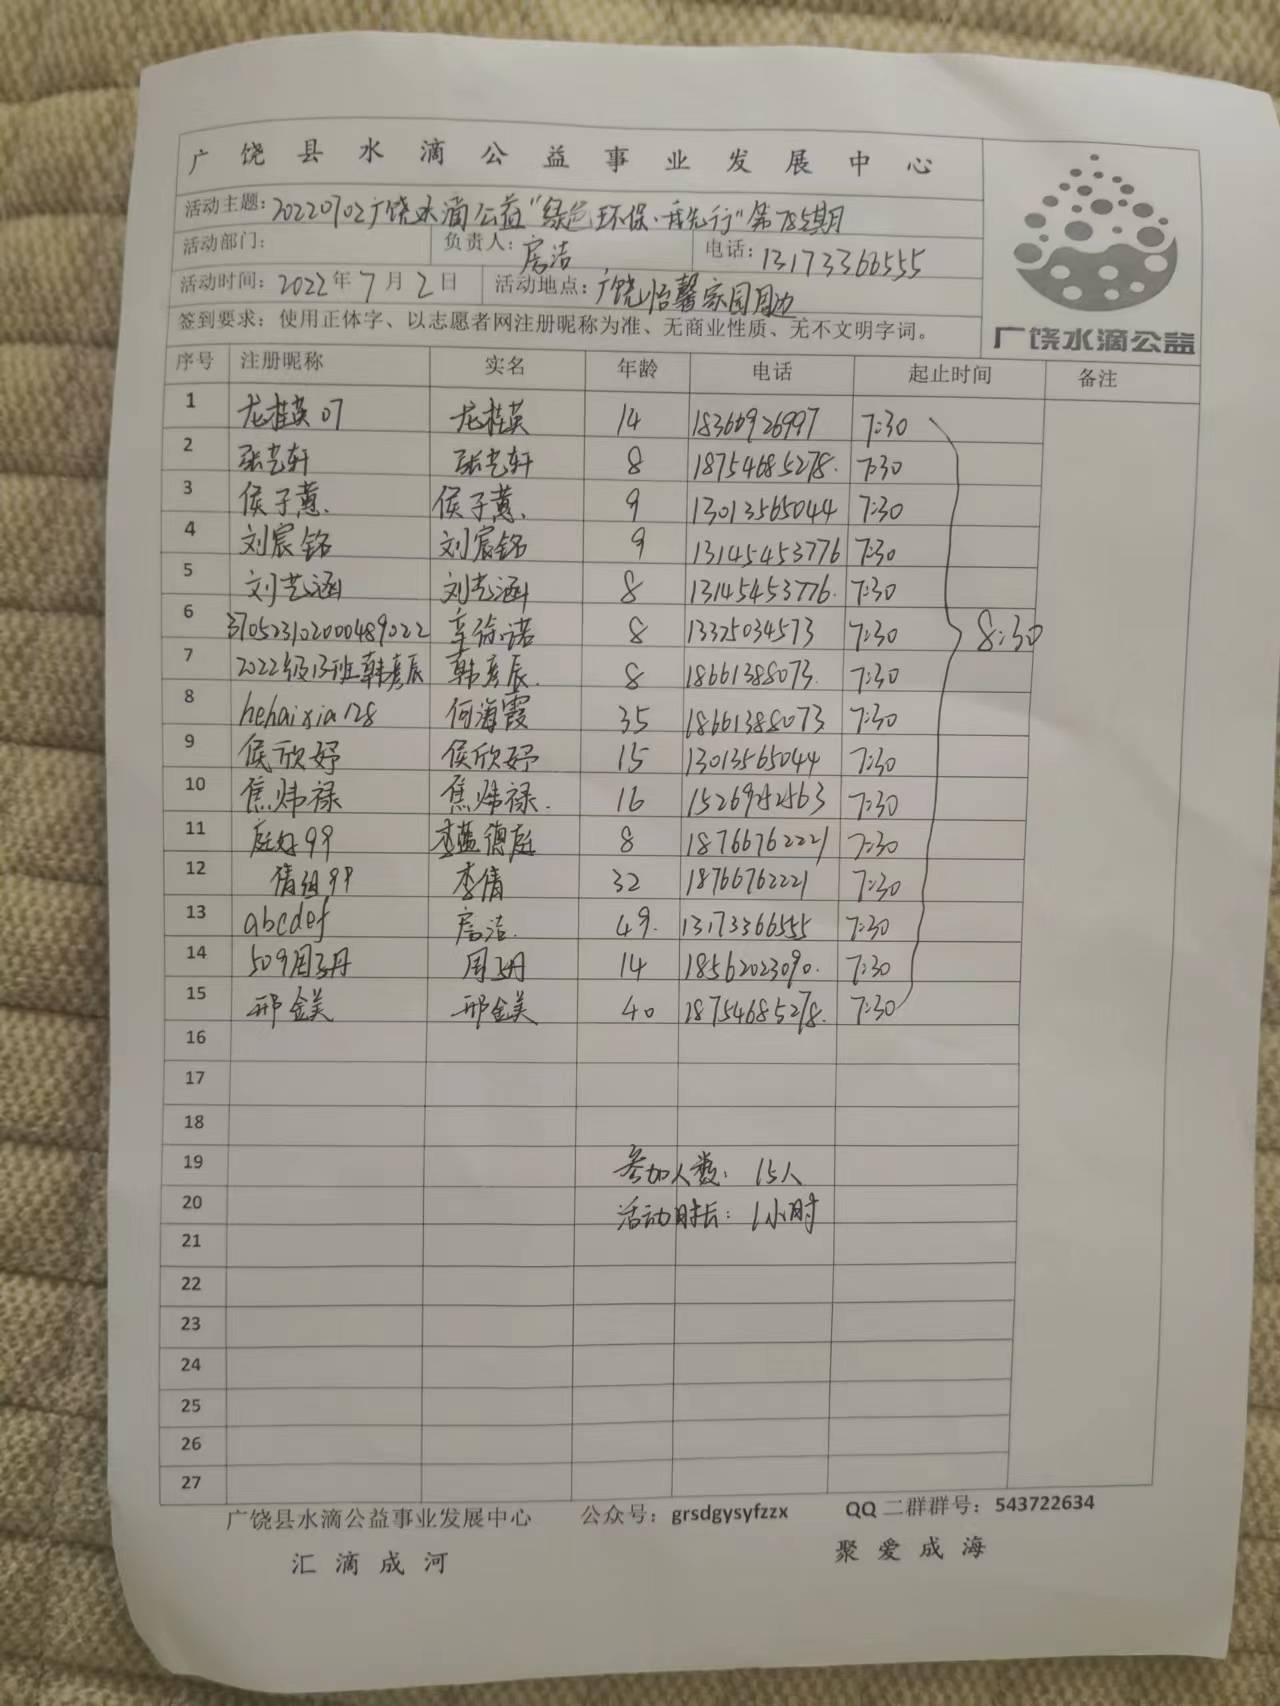 广饶县水滴公益事业发展中心
活动主题：20220702广饶水滴公益"绿色环保·我先行"第785期
活动部门： 负责人：房洁 电话：13173366555
活动时间：2022年7月2日 活动地点：广饶怡馨家园周边
签到要求：使用正体字、以志愿者网注册昵称为准、无商业性质、无不文明字词。
广饶水滴公益
序号 注册昵称 实名 年龄 电话 起止时间 备注
1 龙桂英07 龙桂英 14 18366926997 7:30
2 张艺轩 张艺轩 8 18754685278. 7:30
3 侯子蕙. 侯子蕙. 9 13013565044 7:30
4 刘宸铭 刘宸铭 9 13145453776 7:30
5 刘艺涵 刘艺涵 8 13145453776. 7:30
6 3705231020000489022 辛徐诺 8 13325034573 7:30 8:30
7 2022级13班韩彦辰 韩彦辰. 8 18661388073. 7:30
8 hehaixia128 何海霞 35 18661388073 7:30
9 侯欣妤 侯欣妤 15 13013565044 7:30
10 焦炜禄 焦炜禄. 16 15269252563 7:30
11 庭好99 李蕴德庭 8 18766762221 7:30
12 倩组99 李倩 32 18766762221 7:30
13 abcdef 房洁. 49. 13173366555 7:30
14 509周子丹 周子丹 14 18562023090. 7:30
15 邢金美 邢金美 40 18754685278. 7:30
16
17
18
19 参加人数：15人
20 活动时长：1小时
21
22
23
24
25
26
27
广饶县水滴公益事业发展中心 公众号：grsdgysyfzzx QQ二群群号：543722634
汇滴成河 聚爱成海